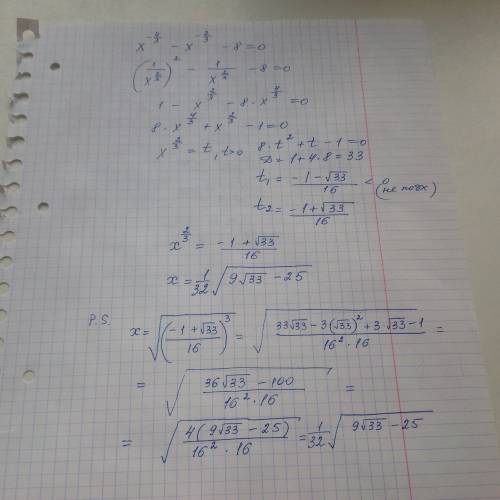 x^{-4/3} - x^{-2/3} - 8 = 0
(1/x^{2/3})^2 - 1/x^{2/3} - 8 = 0
1 - x^{2/3} - 8 · x^{4/3} = 0
8 · x^{4/3} + x^{2/3} - 1 = 0
x^{2/3} = t, t>0 8 · t^2 + t - 1 = 0
D = 1 + 4 · 8 = 33
t_1 = (-1 - √33)/16 < 0 (не подх)
t_2 = (-1 + √33)/16
x^{2/3} = (-1 + √33)/16
x = 1/32 √(9√33 - 25)
P.S. x = √(((-1 + √33)/16)^3) = √((33√33 - 3(√33)^2 + 3√33 - 1)/(16^2 · 16)) =
= √((36√33 - 100)/(16^2 · 16)) =
= √((4(9√33 - 25))/(16^2 · 16)) = 1/32 √(9√33 - 25)